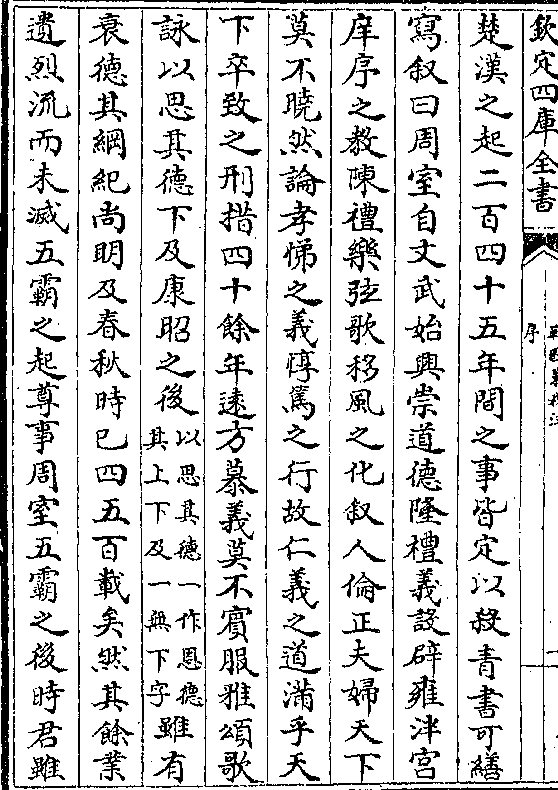 欽定四庫全書
戰國策校注
序
楚漢之起二百四十五年間之事皆定以殺青書可繕
寫叙曰周室自文武始興崇道德隆禮義設辟雍泮宮
庠序之教陳禮樂弦歌移風之化叙人倫正夫婦天下
莫不曉然論孝悌之義惇篤之行故仁義之道滿乎天
下卒致之刑措四十餘年逺方慕義莫不賓服雅頌歌
詠以思其德下及康昭之後以思其德一作恩德其上下及一無下字雖有
衰德其綱紀尚明及春秋時已四五百載矣然其餘業
遺烈流而未滅五霸之起尊事周室五霸之後時君雖